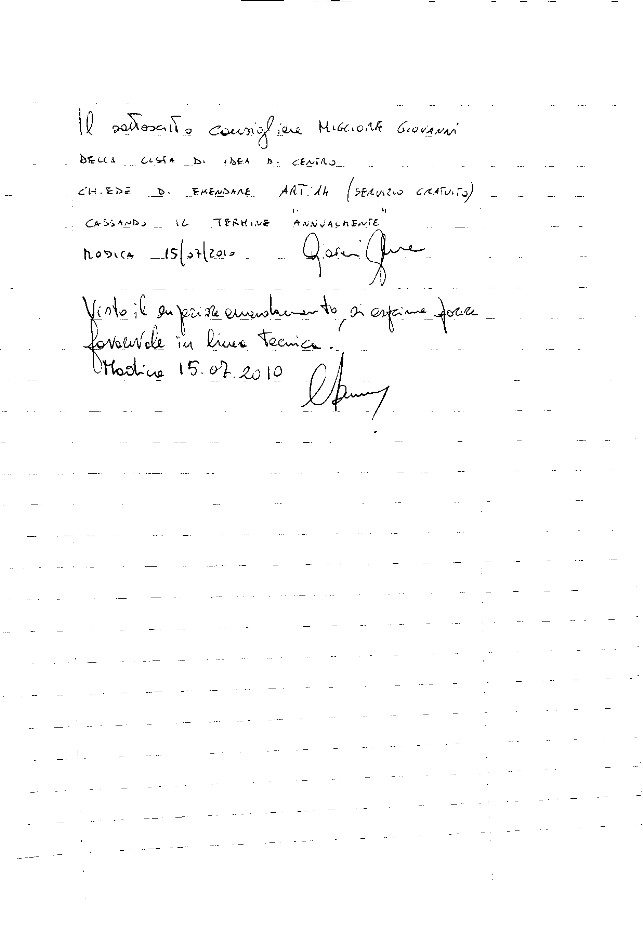 Il sottoscritto consigliere MIGLIORE GIOVANNI
DELLA LISTA DI IDEA DI CENTRO
CHIEDE DI EMENDARE ART. 14 (SERVIZIO GRATUITO)
CASSANDO IL TERMINE "ANNUALMENTE"
MODICA 15/07/2010
Visto il emendamento, si esprime parere
favorevole in linea tecnica.
Modica 15.07.2010